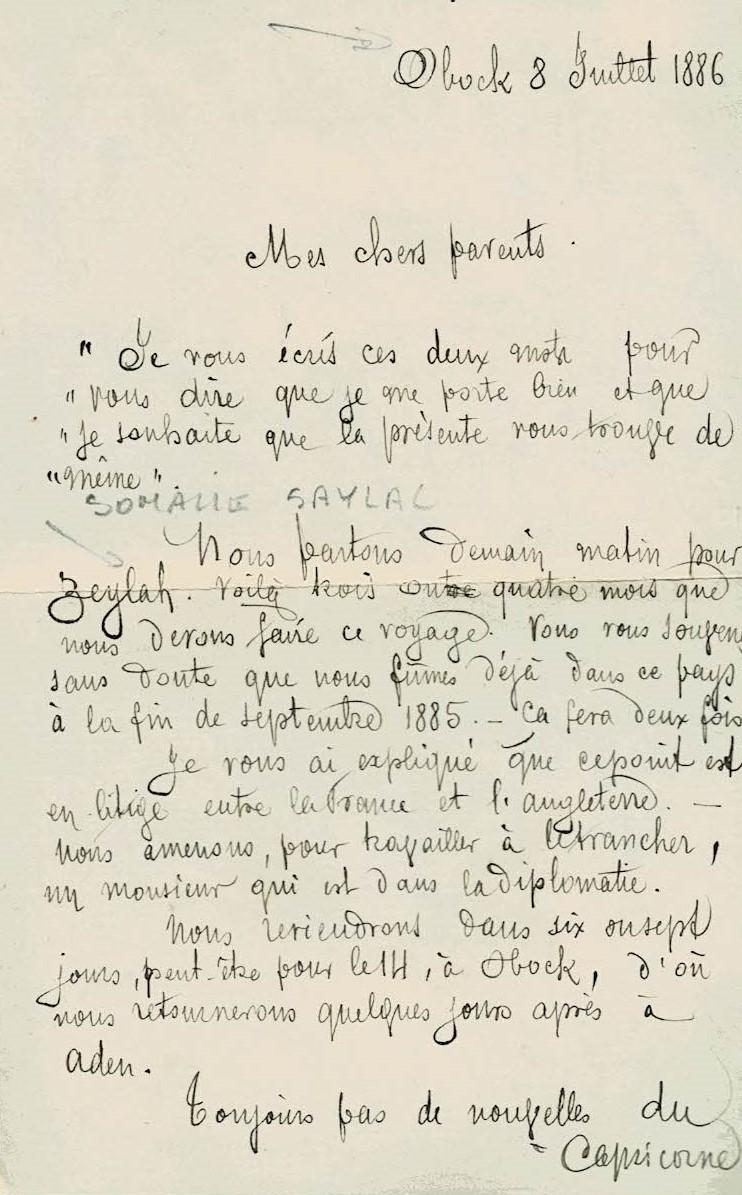 Obock 8 Juillet 1886
Mes chers parents.
" Je vous écris ces deux mots pour
" vous dire que je me porte bien et que
" je souhaite que la présente vous trouve de
" même ".
SOMALIE SAYLAC
Nous partons demain matin pour
Zeylah. Voilà trois ou quatre mois que
nous devons faire ce voyage. Vous vous souven
sans doute que nous fûmes déjà dans ce pays
à la fin de septembre 1885. – Ca fera deux fois
Je vous ai expliqué que ce point est
en litige entre la France et l'angleterre. —
Nous amenons, pour travailler à le trancher,
un monsieur qui est dans la diplomatie.
Nous reviendrons dans six ou sept
jours, peut-être pour le 14, à Obock, d'où
nous retournerons quelques jours après à
aden.
Toujours pas de nouvelles du
Capricorne